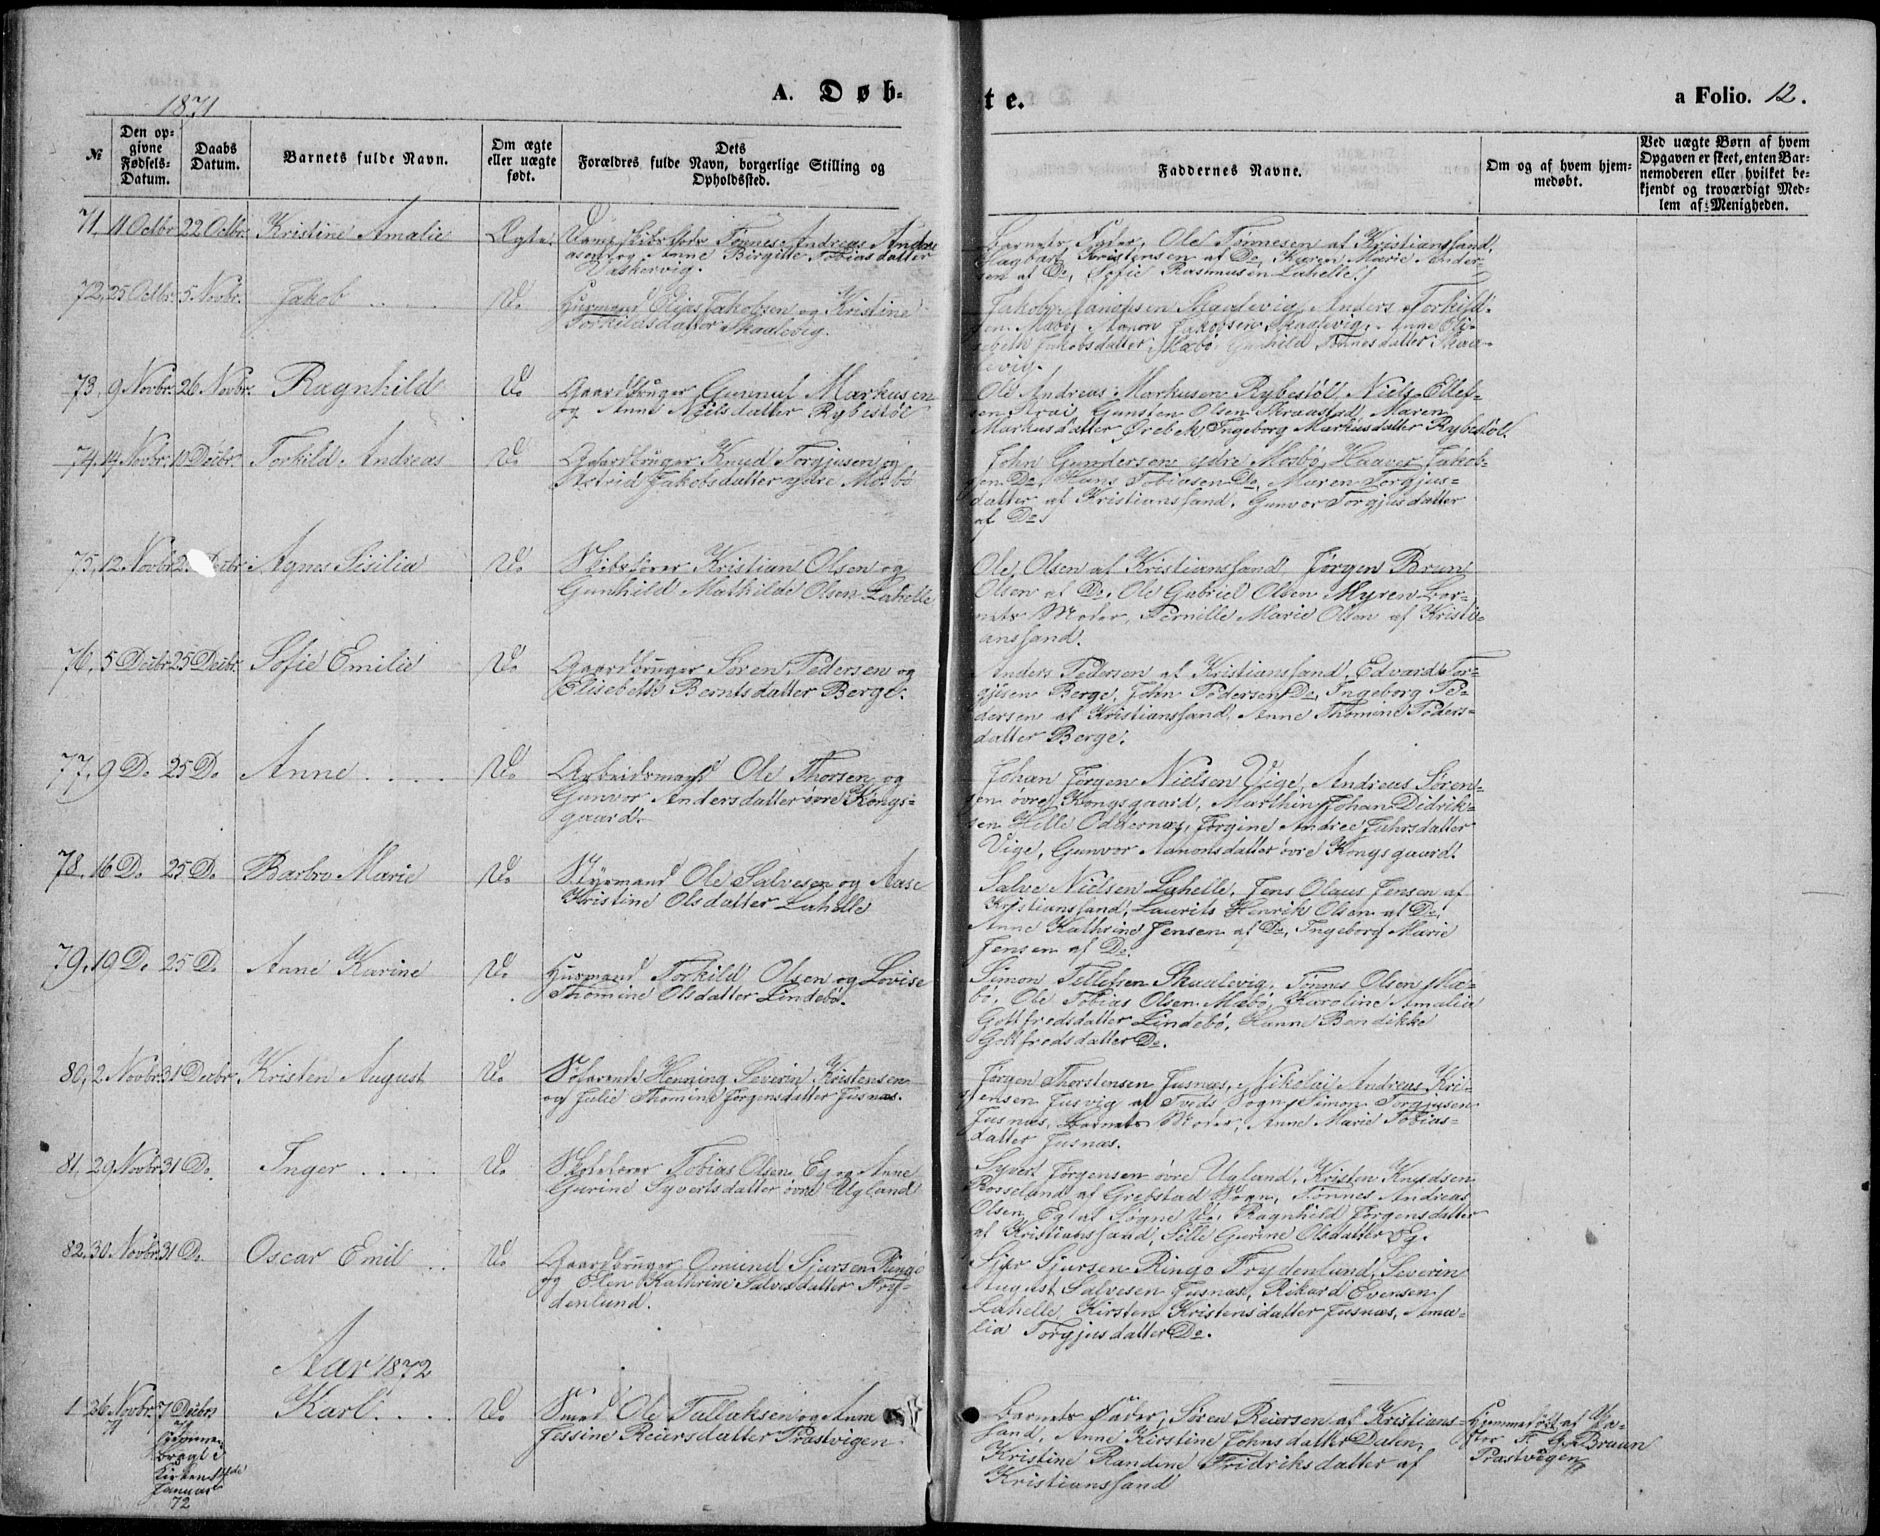 1871
A. Døb-
te.
a Folio. 12.
№
Den op-
givne
Fødsels-
Datum.
Daabs
Datum.
Barnets fulde Navn.
Om ægte
eller uægte
født.
Dets
Forældres fulde Navn, borgerlige Stilling og
Opholdssted.
Faddernes Navne.
Om og af hvem hjem-
medøbt.
Ved uægte Børn af hvem
Opgaven er skeet, enten Bar-
nemoderen eller hvilket be-
kjendt og troværdigt Med-
lem af Menigheden.
71. 11 Octbr 22 Octbr. Kristine Amalie Ægte. Tønnes Andreas Andre
asen og Anne Birgitte Tobiasdatter
Vaskervig.
Barnets Fader, Ole Tønnesen af Kristianssand,
Dagbart Kristensen af Do, Karen Marie Ander-
sen af Do, Sofie Rasmusen Lahelle.
72. 25 Octbr. 5 Novbr. Jakob Do Huusmand Elias Jakobsen og Kristine
Torkildsdatter Skaalevig.
Jakob Skaalevig, Anders Torkild-
sen Mæbø, Jakobsen Skaalevig, Anne Eli-
sebeth Jakobsdatter Mæbø, Gunhild Tønnesdatter Skaa-
levig.
73. 9 Novbr. 26 Novbr. Ragnhild Do Gaardbruger Gunnuf Markusen
og Anne Nielsdatter Rybestøl
Ole Andreas Markusen Rybestøl, Niels Ellef-
sen Strai, Gunsten Olsen Straastad, Maren
Markusdatter Ørebek, Ingeborg Markusdatter Rybestøl.
74. 14 Novbr. 10 Decbr. Torkild Andreas Do Gaardbruger Knud Torgjusen og
Astrid Jakobsdatter ydre Mosbø
John Gundersen ydre Mosbø, Haaver Jakob-
sen Do, Hans Tobiasen Do, Maren Torgjus-
datter af Kristianssand, Gunvor Torgjusdatter
af Do.
75. 12 Novbr Decbr Agnes Sisilia Do Skibsfører Kristian Olsen og
Gunhild Mathilde Olsen Lahelle
Ole Olsen af Kristianssand Jørgen Brun
Olsen af Do. Ole Gabriel Olsen Myren Bar-
nets Moder, Pernille Marie Olsen af Kristi-
anssand.
76. 5 Decbr 25 Decbr. Sofie Emilie Do Gaardbruger Søren Pedersen og
Elisebeth Berntsdatter Berge.
Anders Pedersen af Kristianssand, Edvard Tor-
gjusen Berge, John Pedersen Do, Ingeborg Pe-
dersen af Kristianssand, Anne Thomine Peders-
datter Berge.
77. 9 D. 25 D. Anne Do Arbeidsmand Ole Thorsen og
Gunvor Andersdatter øvre Kongs-
gaard.
Johan Jørgen Nielsen Vige, Andreas Søren-
sen øvre Kongsgaard, Marthin Johan Didrik-
sen Hille Oddernæs, Jørgine Andree
Vige, Gunvor Aanonsdatter øvre Kongsgaard.
78. 16 D. 25 D. Barbro Marie Do Styrmand Ole Salvesen og Aase
Kristine Olsdatter Lahelle
Salve Nielsen Lahelle, Jens Olaus Jensen af
Kristianssand, Laurits Henrik Olsen af Do,
Anne Kathrine Jensen af Do, Ingeborg Marie
Jensen af Do.
79. 19 D. 25 D. Anne Karine Do Huusmand Torkild Olsen og Lovise
Thomine Olsdatter Lindebø.
Simon Tellefsen Skaalevig, Tønnes Olsen Mæ-
bø, Ole Tobias Olsen Mæbø, Karoline Amalia
Gottfredsdatter Lindebø, Hanne Bendikke
Gottfredsdatter Do.
80. 2 Novbr. 31 Decbr. Kristen August Do Søfarende Henning Severin Kristensen
og Julie Thomine Jørgensdatter Jusnæs.
Jørgen Thorstensen Jusnæs, Nikolai Andreas Kri-
stensen Jusvig af Tveds Sogn, Simon Torgjusen
Jusnæs, Barnets Moder, Anne Marie Tobias-
datter Jusnæs.
81. 29 Novbr 31 D. Inger Do Tobias Olsen Eg og Anne
Gurine Syvertsdatter øvre Ugland
Syvert Jørgensen øvre Ugland, Kristen Knudsen
Rosseland af Grefstad Sogn, Tønnes Andreas
Olsen Eg af Søgne Do, Ragnhild Jørgensdatter
af Kristianssand, Sille Gurine Olsdatter Eg.
82. 30. Novbr 31 D. Oscar Emil Do Gaardbruger Omund Sjursen Ringø
og Elen Kathrine Salvesdatter Fry-
denlund.
Sjur Sjursen Ringo Frydenlund, Severin
August Salvesen Jusnæs, Rikard Evensen
Lahelle, Kirsten Kristensdatter Jusnæs, Ama-
lia Torgjusdatter Do.
Aar 1872
1 26 Novbr. 71 7 Decbr. 71 Karl Do Smed Ole Tallaksen og Anne
Jessine Reiersdatter Præstvigen
Barnets Fader, Søren Reiersen af Kristians-
sand, Anne Kirstine Johnsdatter Dalen,
Kristine Randine Fridriksdatter af
Kristianssand
Hjemmedøbt af
F. G. Bruun
Præstvigen
bragt i
Kirken
Januar
72